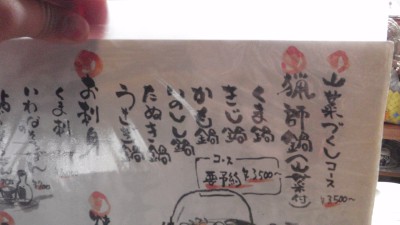 山菜づくしコース
¥3,500~
猟師鍋(山菜村)
くま鍋
きじ鍋
かも鍋
いのしし鍋
たぬき鍋
うさぎ鍋
コース ¥3,500~
要予約
お刺身
くま刺